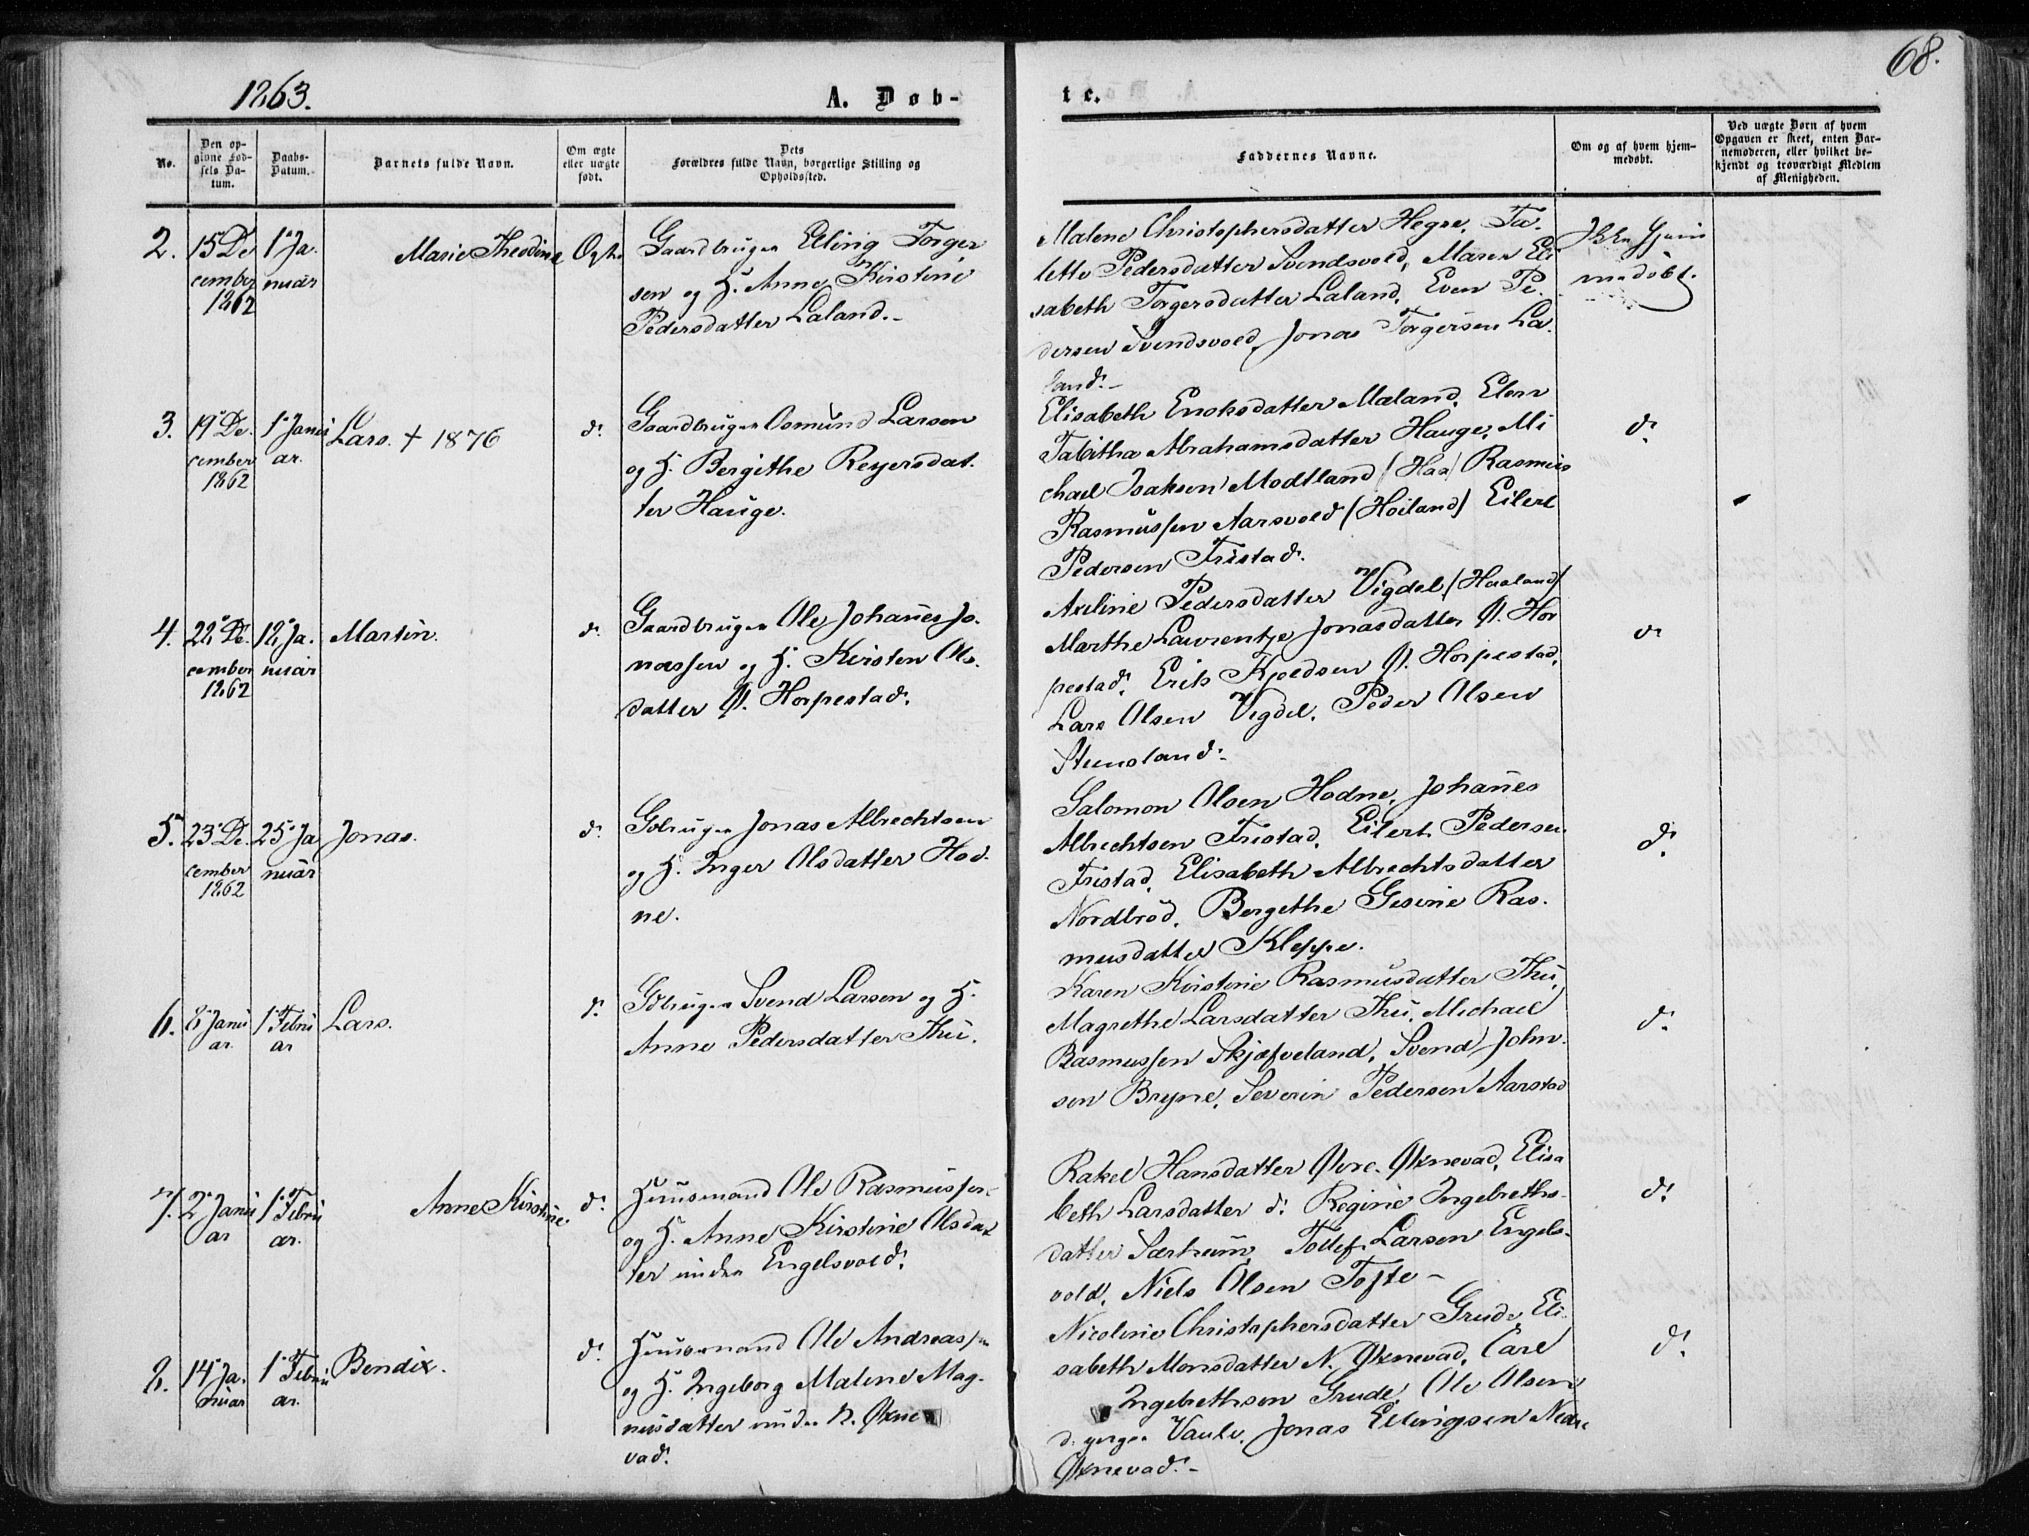 1863.
A. Døb-
te.
68.
No.
Den op-
givne Fød-
sels Da-
tum.
Daabs-
Datum.
Barnets fulde Navn.
Om ægte
eller uægte
født.
Dets
Forældres fulde Navn, borgerlige Stilling og
Opholdssted.
Faddernes Navne.
Om og af hvem hjem-
medøbt.
Ved uægte Børn af hvem
Opgaven er skeet, enten Bar-
nemoderen, eller hvilket be-
kjendt og troværdigt Medlem
af Menigheden.
2.
15 De
cember
1862
1 Ja.
nuar
Marie Theodine
Ægte
Gaardbruger Elling Torger
sen og H. Anne Kirstine
Pedersdatter Laland.-
Malene Christophersdatter Hegre, Ta-
lette Pedersdatter Svendsvold, Maren Eli
sabeth Torgersdatter Laland, Even Pe.
dersen Svendsvold, Jonas Torgersen La.
land.-
Ikke hjem
medøbt.
3.
19 De.
cember
1862
1 Janu
ar.
Lars. + 1876
do.
Gaardbruger Osmund Larsen
og H. Bergithe Reyersdat.
ter Hauge.
Elisabeth Enoksdatter Maland, Elen
Tabitha Abrahamsdatter Hauge, Mi
chael Isaksen Modtland (Haa) Rasmus
Rasmussen Aarsvold (Høiland) Eilert
Pedersen Fristad.
do.
4.
22 De.
cember
1862
12 Ja.
nuar
Martin.
do.
Gaardbruger Ole Johanes Jo.
nassen og H. Kirsten Ols.
datter Ø. Horpestad.
Axeline Pedersdatter Vigdel (Haaland)
Marthe Laurentze Jonasdatter Ø. Hor
pestad, Erik Kjeldsen Ø. Horpestad,
Lars Olsen Vigdel, Peder Olsen
Steensland.-
do
5.
23 De.
cember
1862
25 Ja
nuar
Jonas.
do.
Gdbruger Jonas Albrechtsen
og H. Inger Olsdatter Hod.
ne.
Salomon Olsen Hodne, Johanes
Albrechtsen Fristad, Eilert Pedersen
Fristad, Elisabeth Albrechtsdatter
Nordbrød, Bergethe Gesine Ras.
musdatter Kleppe.
do.
6.
8 Janu
ar.
1 Febru
ar
Lars.
do.
Gdbruger Svend Larsen og H.
Anne Pedersdatter Thu.
Karen Kirstine Rasmusdatter Thu,
Magrethe Larsdatter Thu, Michael
Rasmussen Skjæfveland, Svend John.
sen Bryne, Severin Pedersen Aarstad
do.
7.
2 Janu
ar
1 Febru
ar.
Anne Kirstine.
do.
Huusmand Ole Rasmussen
og H. Anne Kirstine Olsdat
ter under Engelsvold.
Rakel Hansdatter Øvre-Øxnevad, Elisa
beth Larsdatter do. Regine Ingebreths.
datter Særheim, Tollef Larsen Engels-
vold, Niels Olsen Tofte-
do.
8.
14 Ja.
nuar
1 Febru
ar.
Bendix.
do.
Huusmand Ole Andreassen
og H. Ingeborg Malene Mag.
nusdatter under N. Øxne
vad.
Nicoline Christophersdatter Grude, Eli.
sabeth Monsdatter N. Øxnevad, Carl
Ingebrethsen Grude, Ole Olsen
d. yngre Vaule, Jonas Ellingsen Nedre
Øxnevad.-
do.